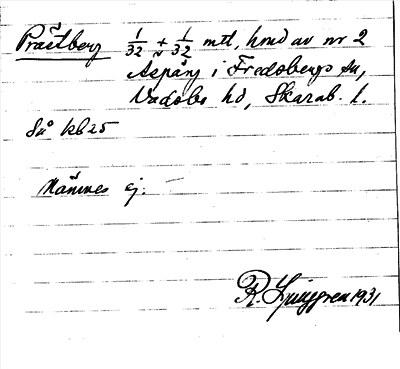 Prästberg 1/32 + 1/32 mtl, hmd av nr 2
Aspång i Fredsbergs sn,
Vadsbo hd, Skarab. l.
Så kb 25
Nämnes ej.
R. Ljunggren 1931